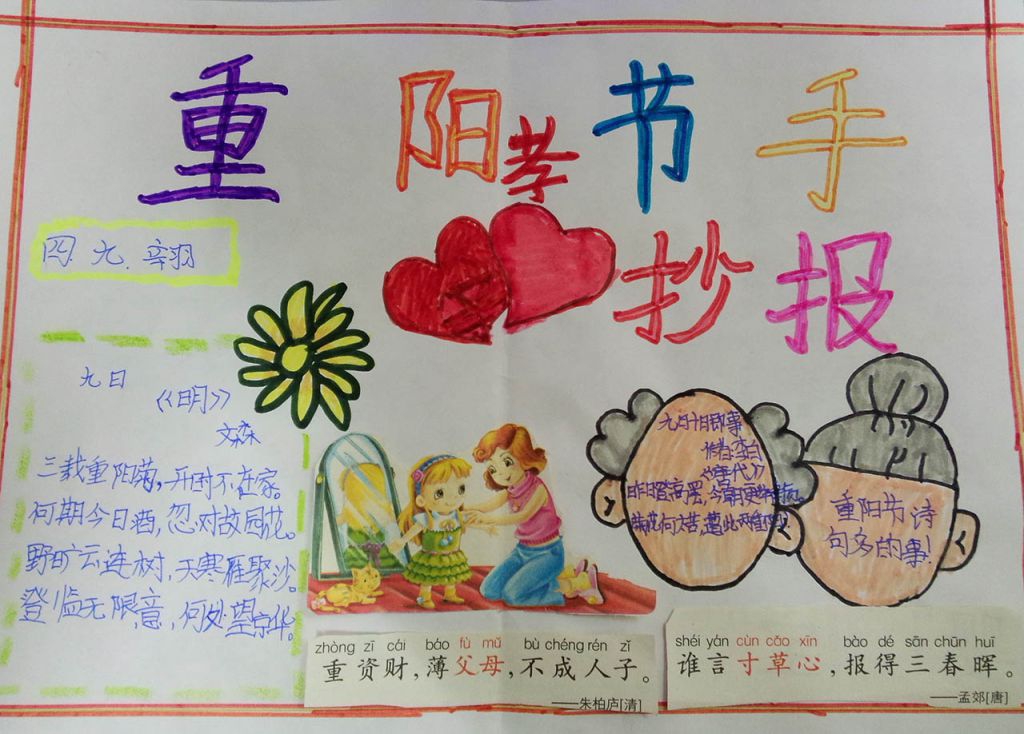 重阳节手
孝
抄报
四.九.弈羽
九日
《明》
文森
三载重阳菊，开时不在家。
何期今日酒，忽对故园花。
野旷云连树，天寒雁聚沙。
登临无限意，何处望京华。
九月十日即事
作者:李白
《唐代》
昨日登高罢，今朝更
菊花何太苦，遭此两重阳
重阳节诗
句多的事!
zhòng zī cái báo fù mǔ bù chéng rén zǐ
重资财，薄父母，不成人子。
——朱柏庐[清]
shéi yán cùn cǎo xīn bào dé sān chūn huī
谁言寸草心，报得三春晖。
——孟郊[唐]